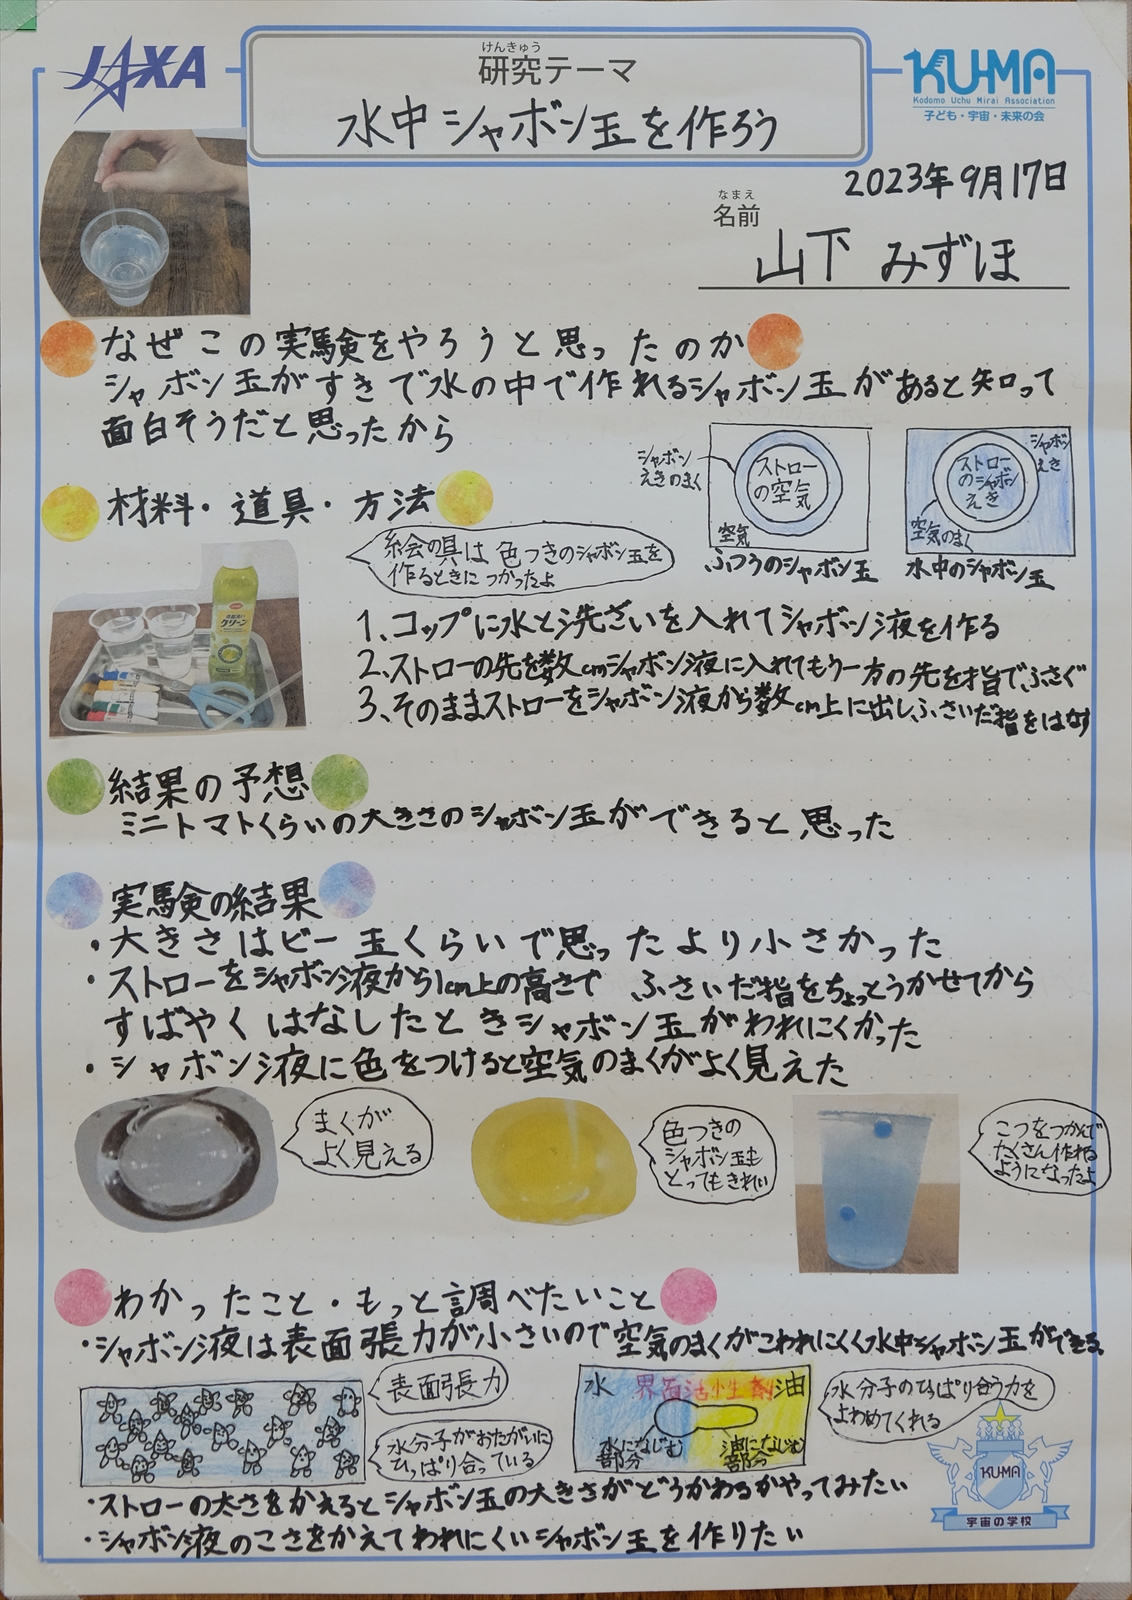 JAXA
けんきゅう
研究テーマ
水中シャボン玉を作ろう
KU-MA
Kodomo Uchu Mirai Association
子ども・宇宙・未来の会
2023年9月17日
なまえ
名前
山下 みずほ
なぜこの実験をやろうと思ったのか
シャボン玉がすきで水の中で作れるシャボン玉があると知って
面白そうだと思ったから
シャボン
えきのまく
ストロー
の空気
空気
ふつうのシャボン玉
シャボン
えき
ストロー
のシャボン
えき
空気のまく
水中のシャボン玉
材料・道具・方法
絵会の具は色つきのシャボン玉を
作るときにつかったよ
クリーン
1、コップに水と洗ざいを入れてシャボン液を作る
2、ストローの先を数cmシャボン液に入れてもう一方の先を指でふさぐ
3、そのままストローをシャボン液から数cm上に出し、ふさいだ指をはなす
結果の予想
ミニトマトくらいの大きさのシャボン玉ができると思った
実験の結果
・大きさはビー玉くらいで思ったより小さかった
・ストローをシャボン液から1cm上の高さで ふさいだ指をちょっとうかせてから
すばやくはなしたときシャボン玉がわれにくかった
・シャボン液に色をつけると空気のまくがよく見えた
まくが
よく見える
色つきの
シャボン玉も
とってもきれい
こつをつかんで
たくさん作れる
ようになったよ
わかったこと・もっと調べたいこと
・シャボン液は表面張力が小さいので空気のまくがこわれにくく水中シャボン玉ができる
表面張力
水分子がおたがいに
ひっぱり合っている
水 界面活性剤 油
水になじむ
部分
油になじむ
部分
水分子のひっぱり合う力を
よわめてくれる
・ストローの太さをかえるとシャボン玉の大きさがどうかわるかやってみたい
・シャボン液のこさをかえてわれにくいシャボン玉を作りたい
KU-MA
宇宙の学校